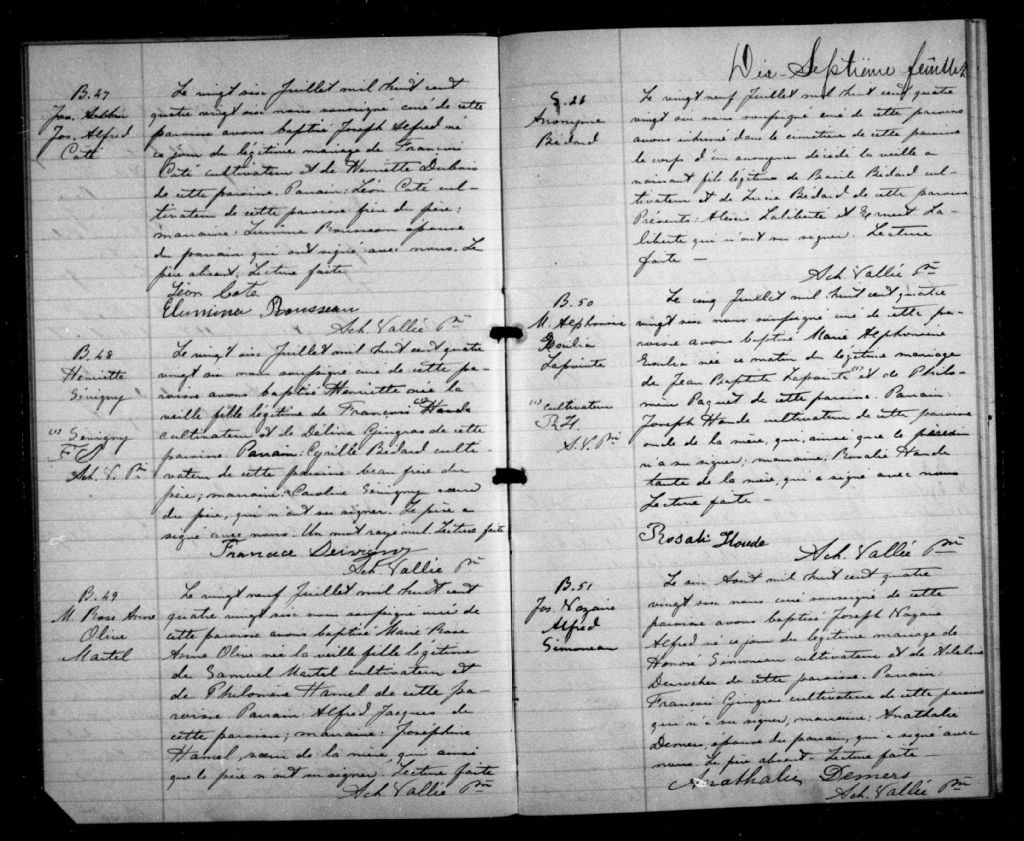 B. 47
Jos. Alfred
Coté
Le vingt six Juillet mil huit cent
quatre vingt six nous soussigné curé de cette
paroisse avons baptisé Joseph Alfred né
ce jour du légitime mariage de François
Coté cultivateur et de Henriette Dubois
de cette paroisse. Parrain: Léon Coté cul-
tivateur de cette paroisse frère du père;
marraine: Lumina Rousseau épouse
du parrain qui ont signé avec nous. Le
père absent. Lecture faite
Léon Coté
Elumina Rousseau
Ach. Vallée Ptre
B. 48
Henriette
Sévigny
(1) Sévigny
F S
Ach. V. Ptre
Le vingt six Juillet mil huit cent quatre
vingt six nous soussigné curé de cette pa-
roisse avons baptisé Henriette née la
veille fille légitime de François (1) Houde
cultivateur et de Délina Gingras de cette
paroisse. Parrain: Cyrille Bédard culti-
vateur de cette paroisse beau frère du
père; marraine: Caroline Sévigny soeur
du père, qui n'ont su signer. Le père a
signé avec nous. Un mot rayé nul. Lecture faite
Ach. Vallée Ptre
B. 49
M. Rose Anne
Oline
Martel
Le vingt neuf Juillet mil huit cent
quatre vingt six nous soussigné curé de
cette paroisse avons baptisé Marie Rose
Anne Oline née la veille fille légitime
de Samuel Martel cultivateur et
de Philomène Hamel de cette pa-
roisse Parrain: Alfred Jacques de
cette paroisse; marraine: Joséphine
Hamel, soeur de la mère, qui ainsi
que le père n'ont su signer. Lecture faite
Ach. Vallée Ptre
Dix-Septième feuillet
S. 26
Anonyme
Bédard
Le vingt neuf Juillet mil huit cent quatre
vingt six nous soussigné curé de cette paroisse
avons inhumé dans le cimetière de cette paroisse
le corps d'un anonyme décédé la veille en
naissant fils légitime de Basile Bédard cul-
tivateur et de Lucie Bédard de cette paroisse
Présents: Alexis Laliberté et Ernest La-
liberté qui n'ont su signer. Lecture
faite —
Ach. Vallée Ptre
B. 50
M. Alphonsine
Emilia
Lapointe
(1) cultivateur
R H.
A.V. Ptre
Le cinq Juillet mil huit cent quatre
vingt six nous soussigné curé de cette pa-
roisse avons baptisé Marie Alphonsine
Emilia née ce matin du légitime mariage
de Jean Baptiste Lapointe (1) et de Philo-
mène Paquet de cette paroisse. Parrain:
Joseph Houde cultivateur de cette paroisse
oncle de la mère, qui, ainsi que le père
n'a su signer; marraine: Rosalie Houde
tante de la mère, qui a signé avec nous
Lecture faite —
Rosali Houde
Ach. Vallée Ptre
B. 51
Jos. Nazaire
Alfred
Simoneau
Le six Aout mil huit cent quatre
vingt six nous curé soussigné de cette
paroisse avons baptisé Joseph Nazaire
Alfred né ce jour du légitime mariage de
Honoré Simoneau cultivateur et de
Desrocher de cette paroisse. Parrain:
François Gingras cultivateur de cette paroisse
qui n'a su signer, marraine: Anathalie
Demers, épouse du parrain, qui a signé avec
nous. Le père absent. Lecture faite —
Anathalie Demers
Ach. Vallée Ptre